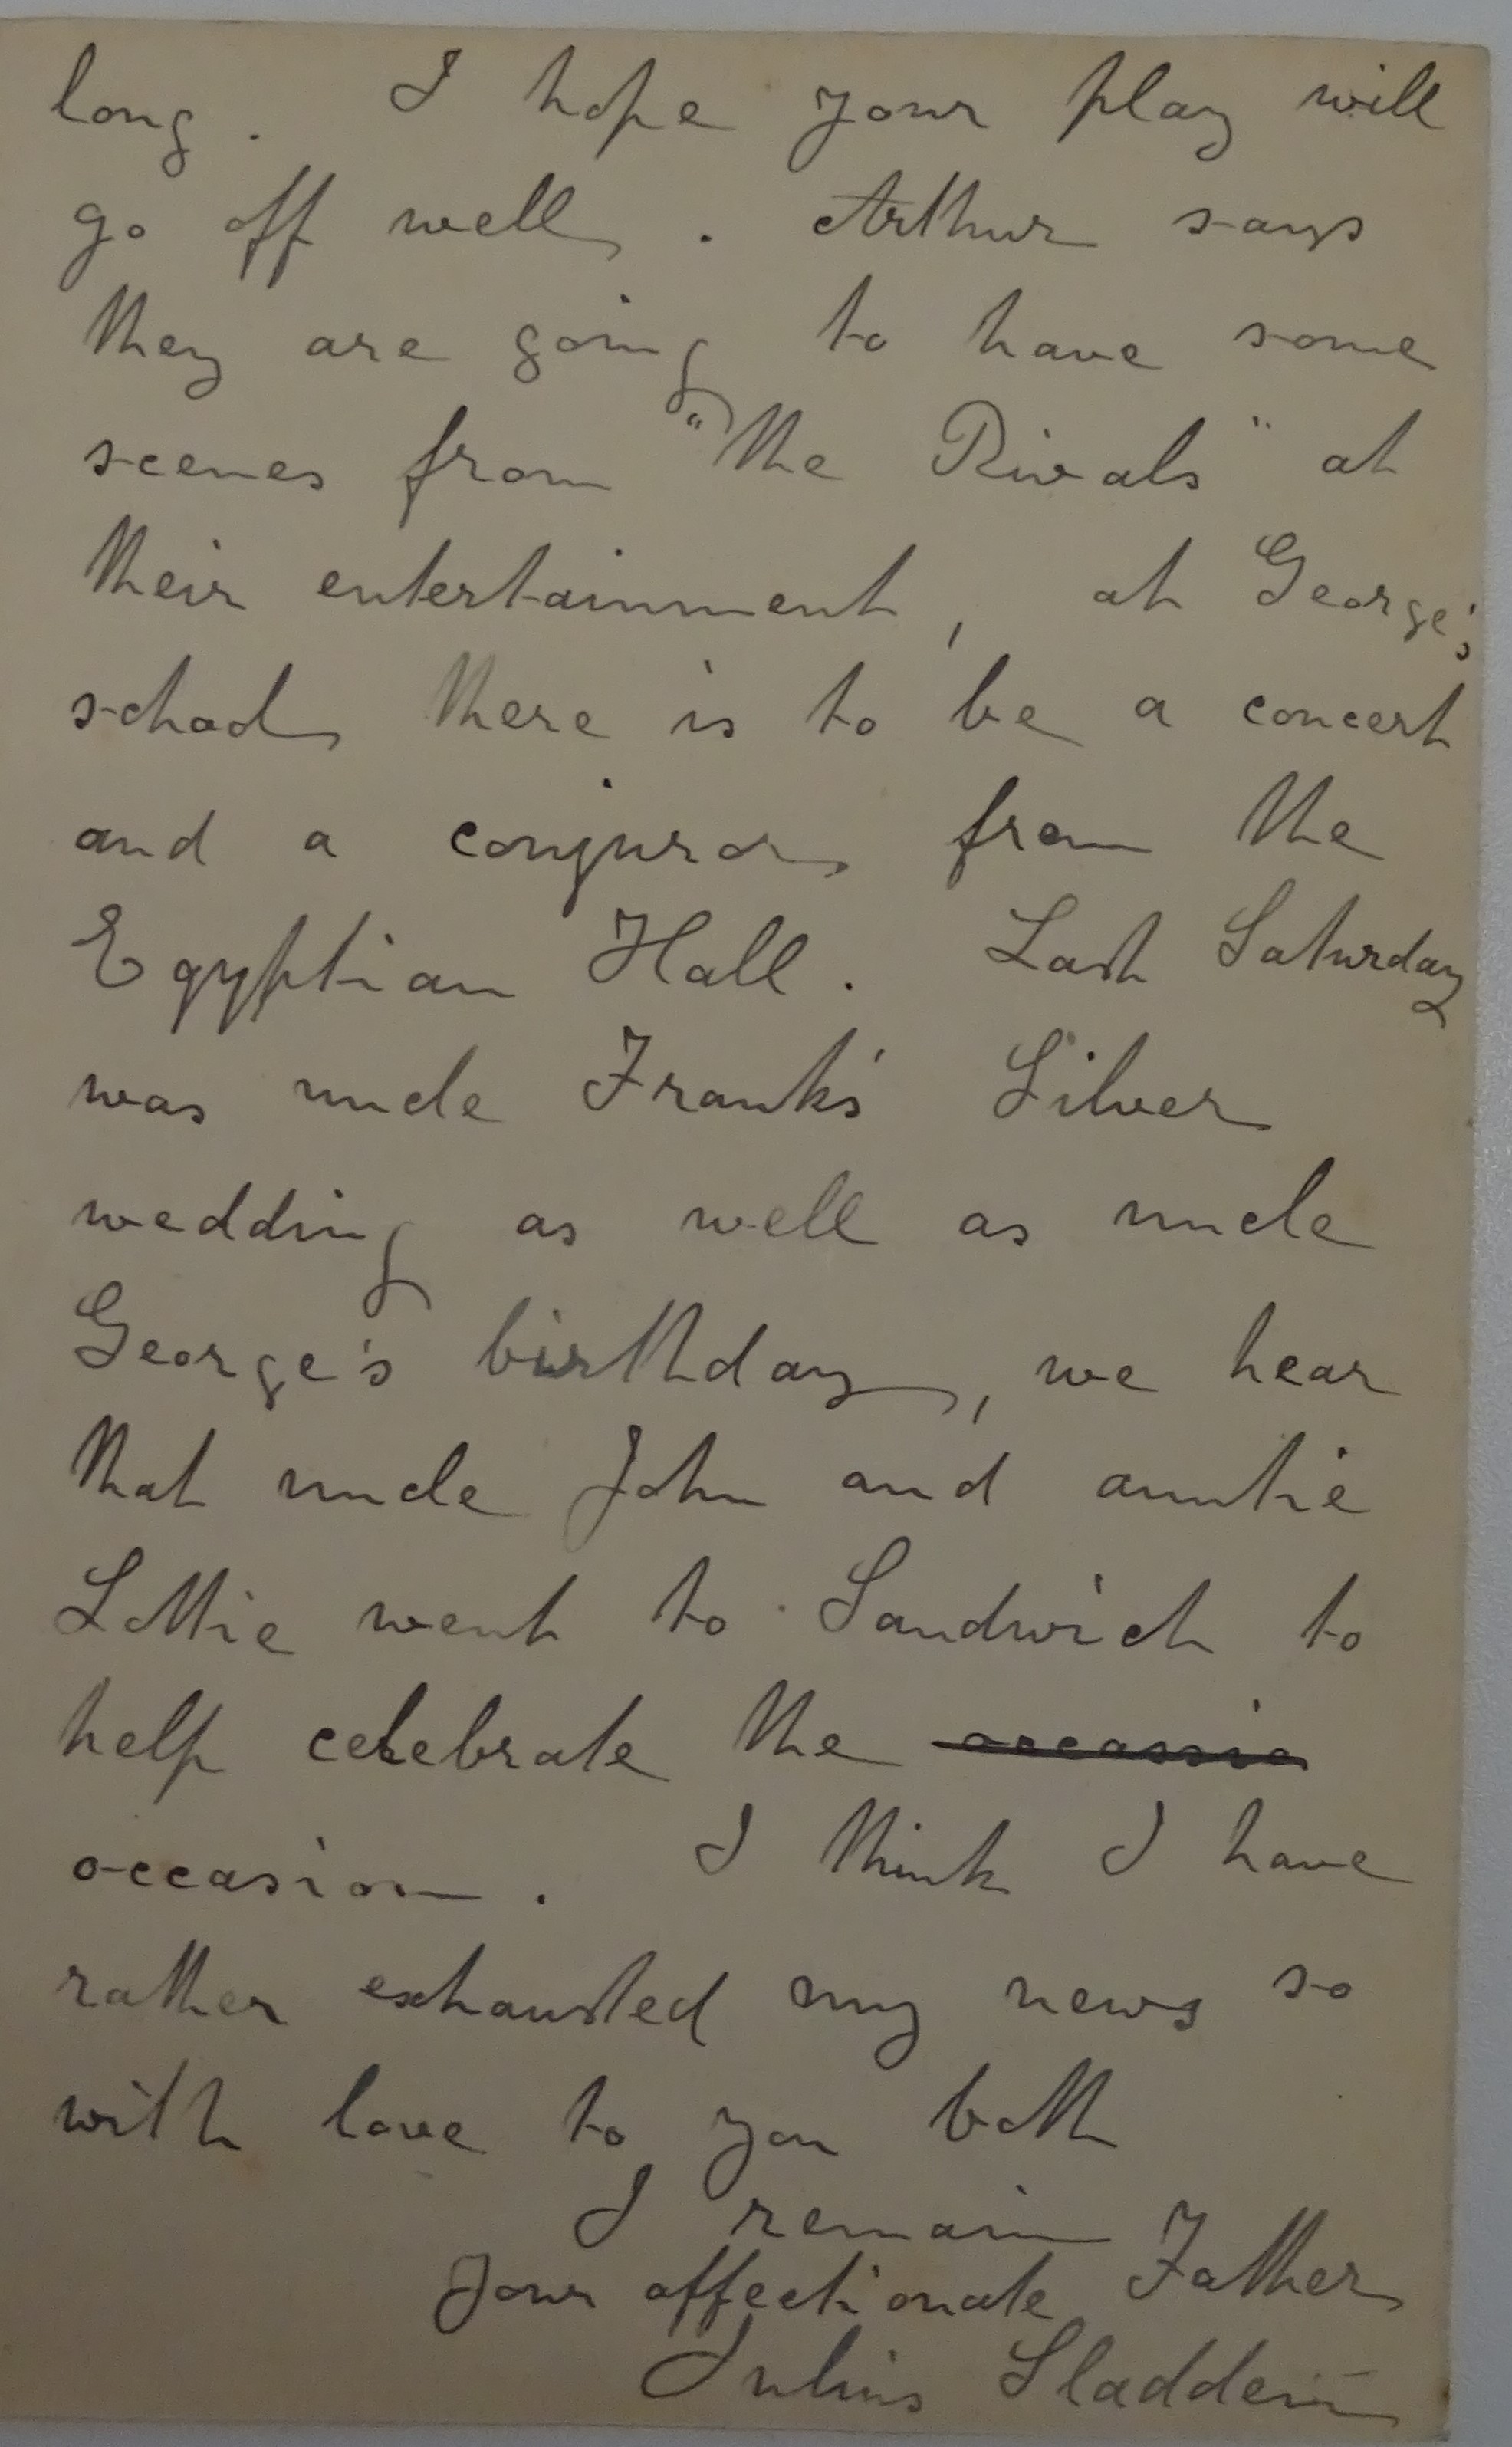 long. I hope your play will
go off well. Arthur says
they are going to have some
scenes from "The Rivals" at
their entertainment, at George's
school there is to be a concert
and a conjuror from the
Egyptian Hall. Last Saturday
was uncle Frank's Silver
wedding as well as uncle
George's birthday, we hear
that uncle John and auntie
Lottie went to Sandwich to
help celebrate the occassio
occasion. I think I have
rather exhausted my news so
with love to you both
I remain
Your affectionate Father
Julius Sladden